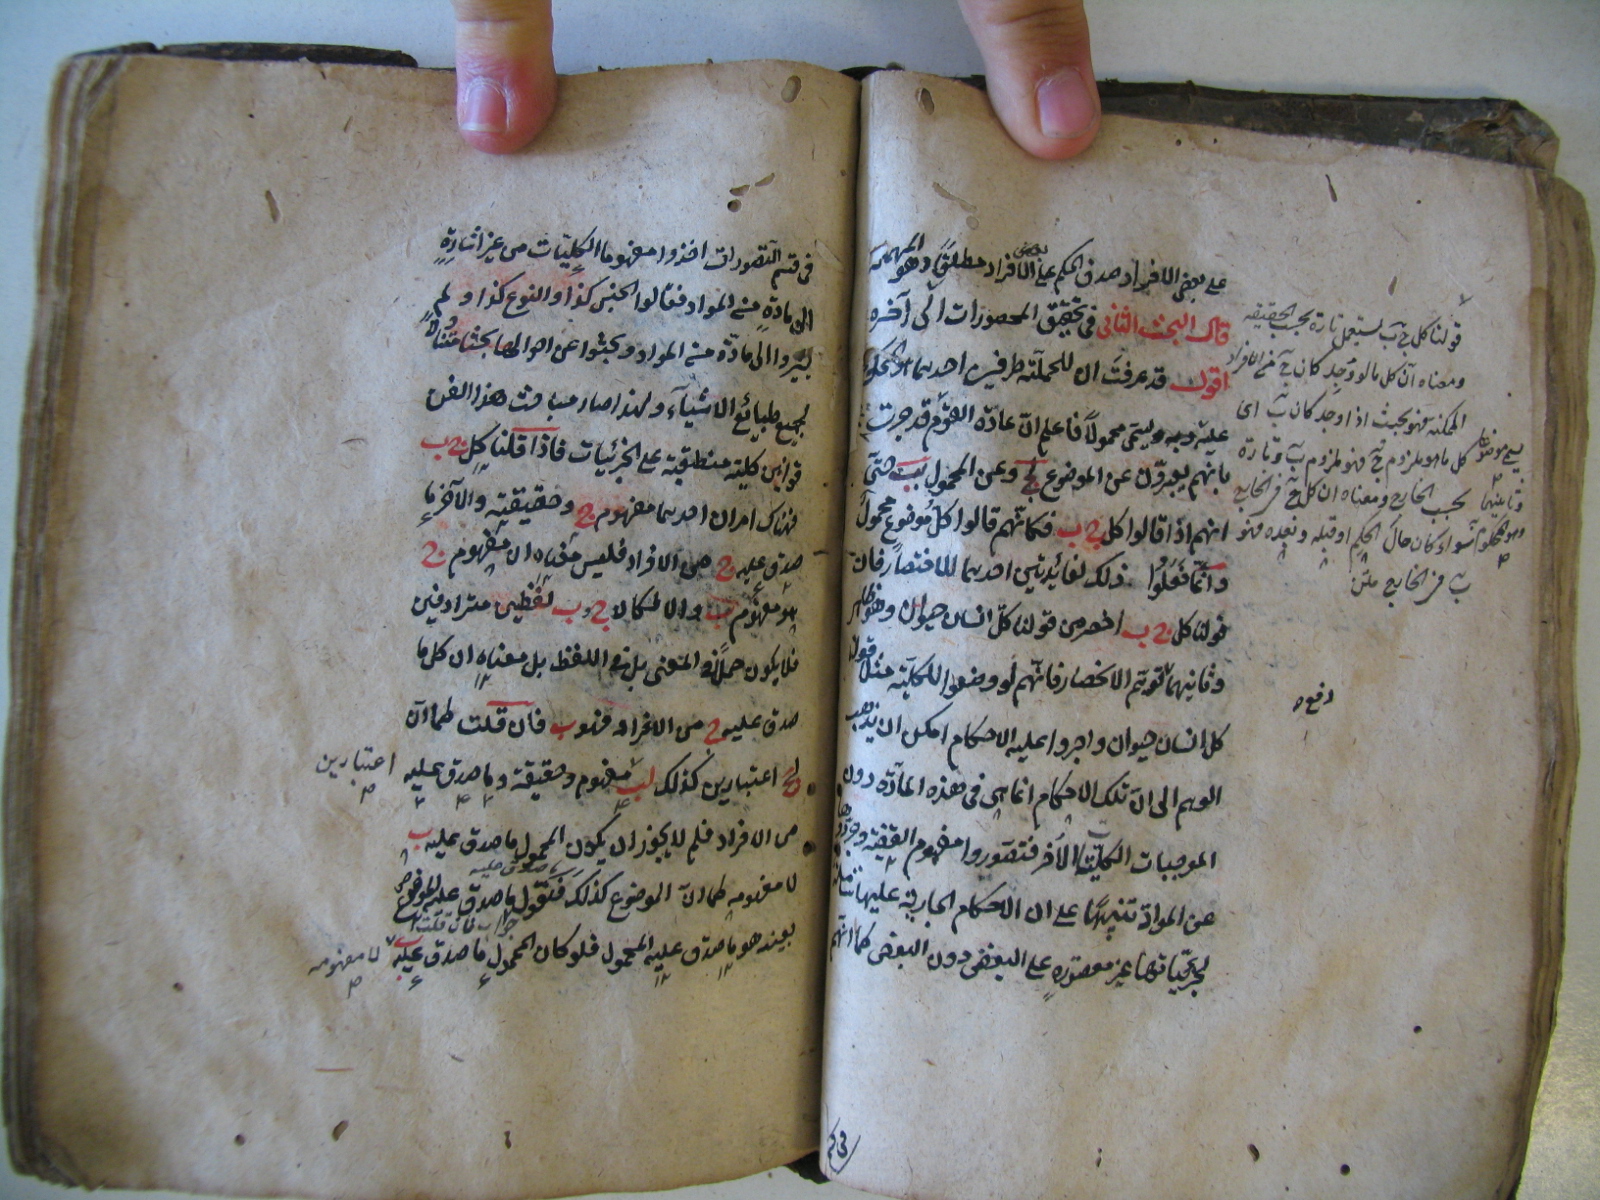 على بعض الافراد صدق الحكم على بعض الافراد مطلقا وهو المهملة
قال البحث الثاني في تحقيق المحصورات الى آخره
اقول قد عرفت ان للحملية طرفين احدهما
عليه وبه ويسمى محمولا فاعلم ان عادة القوم قد جرت
بانهم يعبرون عن الموضوع بج وعن المحمول بب حتى
انهم اذا قالوا كل ج ب فكانهم قالوا كل موضوع محمول
وانما فعلوا ذلك لفائدتين احدهما للاختصار فان
قولنا كل ج ب اخصر من قولنا كل انسان حيوان وهو ظاهر
وثانيهما لتوهم الانحصار فانهم لو وضعوا للكلية مثل قولنا
كل انسان حيوان واجروا عليه الاحكام امكن ان يذهب
الوهم الى ان تلك الاحكام انما هى في هذه المادة دون
الموجبات الكليات الاخر فتصوروا مفهوم القضية وجردوها
عن المواد تنبيها على ان الاحكام الجارية عليها شاملة
لجزئياتها غير مقصورة على البعض دون البعض كما انهم
قولنا كل ج ب يستعمل تارة بحسب الحقيقة
ومعناه ان كل ما لو وجد كان ج من الافراد
الممكنة فهو بحيث اذا وجد كان ب اى
كل ما هو ملزوم ج فهو ملزوم ب وتارة
بحسب الخارج ومعناه ان كل ج في الخارج
سواء كان حال الحكم او قبله وبعده فهو
ب في الخارج متن
دفع
في قسم التصورات اخذوا مفهوما الكليات من غير اشارة
الى مادة من المواد فقالوا الجنس كذا والنوع كذا ولم
يشيروا الى مادة من المواد وبحثوا عن احوالها بحثا متناولا
لجميع طبائع الاشياء ولهذا صار مباحث هذا الفن
قوانين كلية منطبقة على الجزئيات فاذا قلنا كل ج ب
فهناك امران احدهما مفهوم ج وحقيقته والآخر ما
صدق عليه ج من الافراد فليس معناه ان مفهوم ج
هو مفهوم ب والا لكان ج وب لفظين مترادفين
فلا يكون حمل في المعنى بل في اللفظ بل معناه ان كل ما
صدق عليه ج من الافراد فهو ب فان قلت كما ان
لج اعتبارين كذلك لب مفهوم وحقيقة وما صدق عليه
اعتبارين
من الافراد فلم لا يجوز ان يكون المحمول ما صدق عليه ب
لا مفهومه كما ان الموضوع كذلك فنقول ما صدق عليه الموضوع
جواب فان قلت
بعينه هو ما صدق عليه المحمول فلو كان المحمول ما صدق عليه ب
لا مفهومه